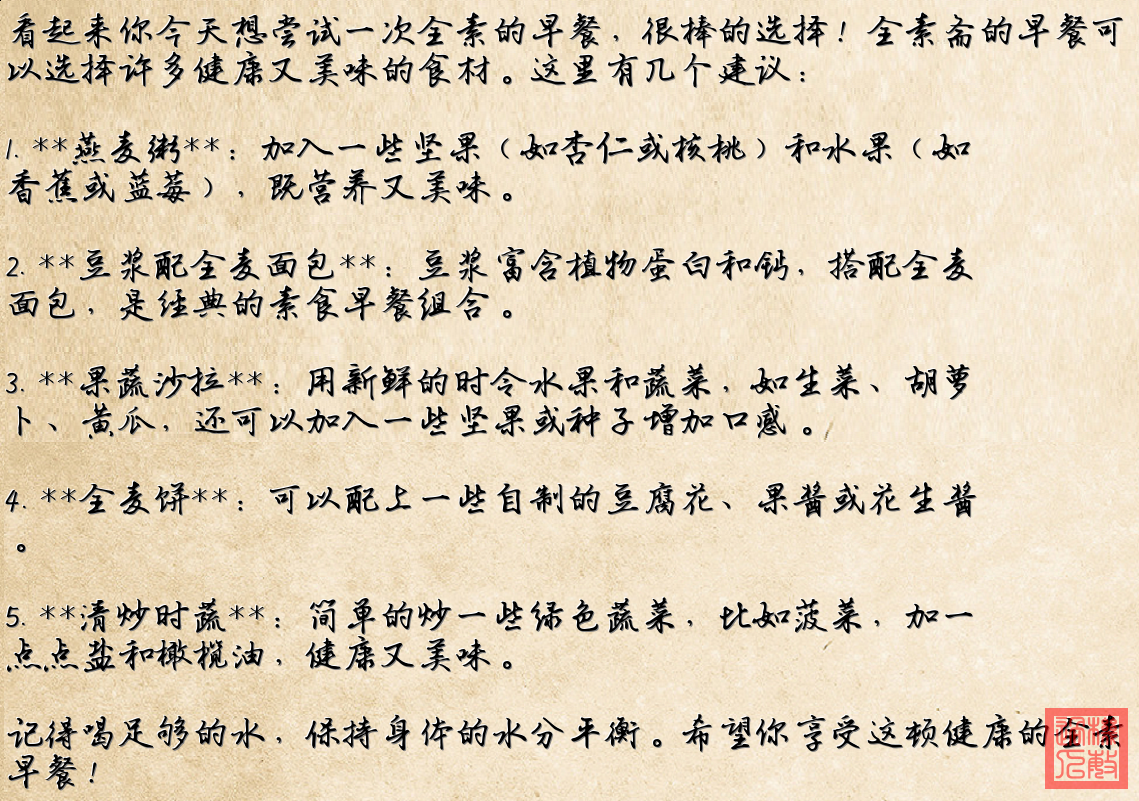 看起来你今天想尝试一次全素的早餐，很棒的选择！全素斋的早餐可
以选择许多健康又美味的食材。这里有几个建议：
1. **燕麦粥**：加入一些坚果（如杏仁或核桃）和水果（如
香蕉或蓝莓），既营养又美味。
2. **豆浆配全麦面包**：豆浆富含植物蛋白和钙，搭配全麦
面包，是经典的素食早餐组合。
3. **果蔬沙拉**：用新鲜的时令水果和蔬菜，如生菜、胡萝
卜、黄瓜，还可以加入一些坚果或种子增加口感。
4. **全麦饼**：可以配上一些自制的豆腐花、果酱或花生酱
。
5. **清炒时蔬**：简单的炒一些绿色蔬菜，比如菠菜，加一
点点盐和橄榄油，健康又美味。
记得喝足够的水，保持身体的水分平衡。希望你享受这顿健康的全素
早餐！